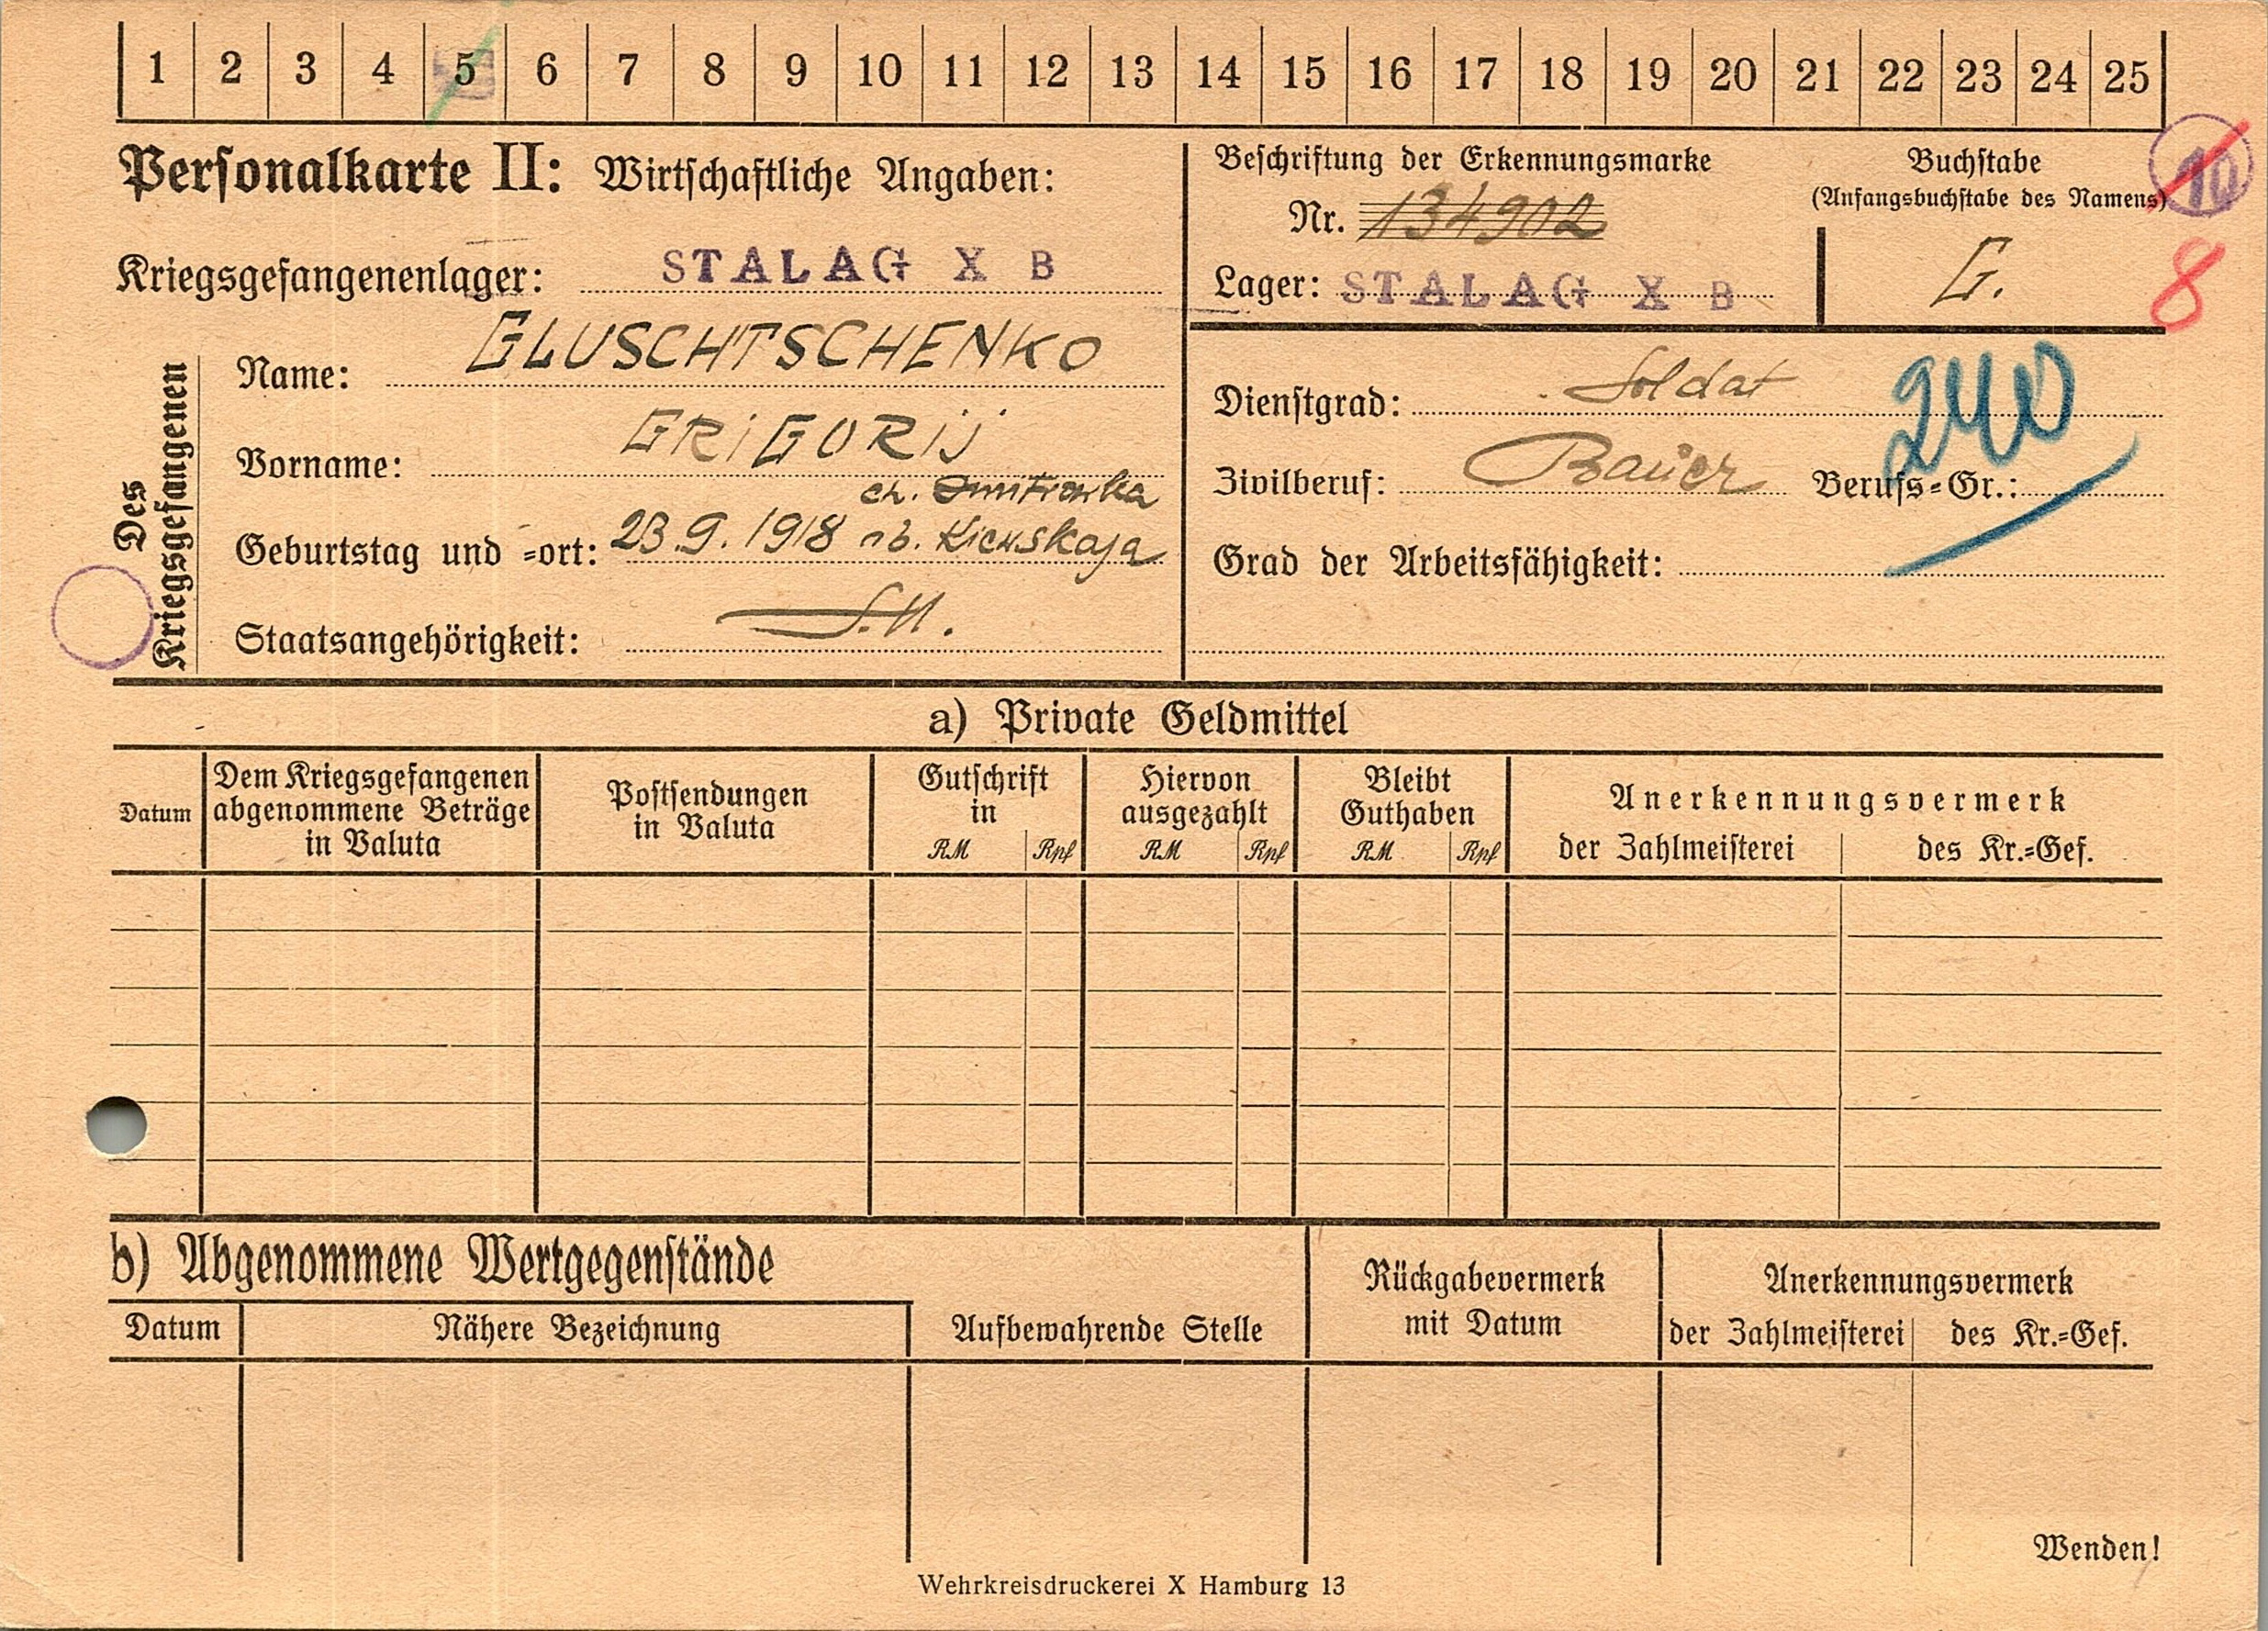 1 2 3 4 5 6 7 8 9 10 11 12 13 14 15 16 17 18 19 20 21 22 23 24 25
Personalkarte II: Wirtschaftliche Angaben:
Beschriftung der Erkennungsmarke
Nr. 134902
Lager: STALAG X B
Buchstabe
(Anfangsbuchstabe des Namens)
G.
10
8
Kriegsgefangenenlager: STALAG X B
Des Kriegsgefangenen
Name: GLUSCHTSCHENKO
Vorname: GRIGORIJ
ch. Dmitrowka
Geburtstag und =ort: 23.9.1918 ob. Kiewskaja
Staatsangehörigkeit: S.U.
Dienstgrad: Soldat
240
Zivilberuf: Bauer Berufs=Gr.:
Grad der Arbeitsfähigkeit:
a) Private Geldmittel
Datum
Dem Kriegsgefangenen
abgenommene Beträge
in Valuta
Postsendungen
in Valuta
Gutschrift
in
RM Rpf
Hiervon
ausgezahlt
RM Rpf
Bleibt
Guthaben
RM Rpf
Anerkennungsvermerk
der Zahlmeisterei des Kr.=Gef.
b) Abgenommene Wertgegenstände
Datum
Nähere Bezeichnung
Aufbewahrende Stelle
Rückgabevermerk
mit Datum
Anerkennungsvermerk
der Zahlmeisterei des Kr.=Gef.
Wenden!
Wehrkreisdruckerei X Hamburg 13